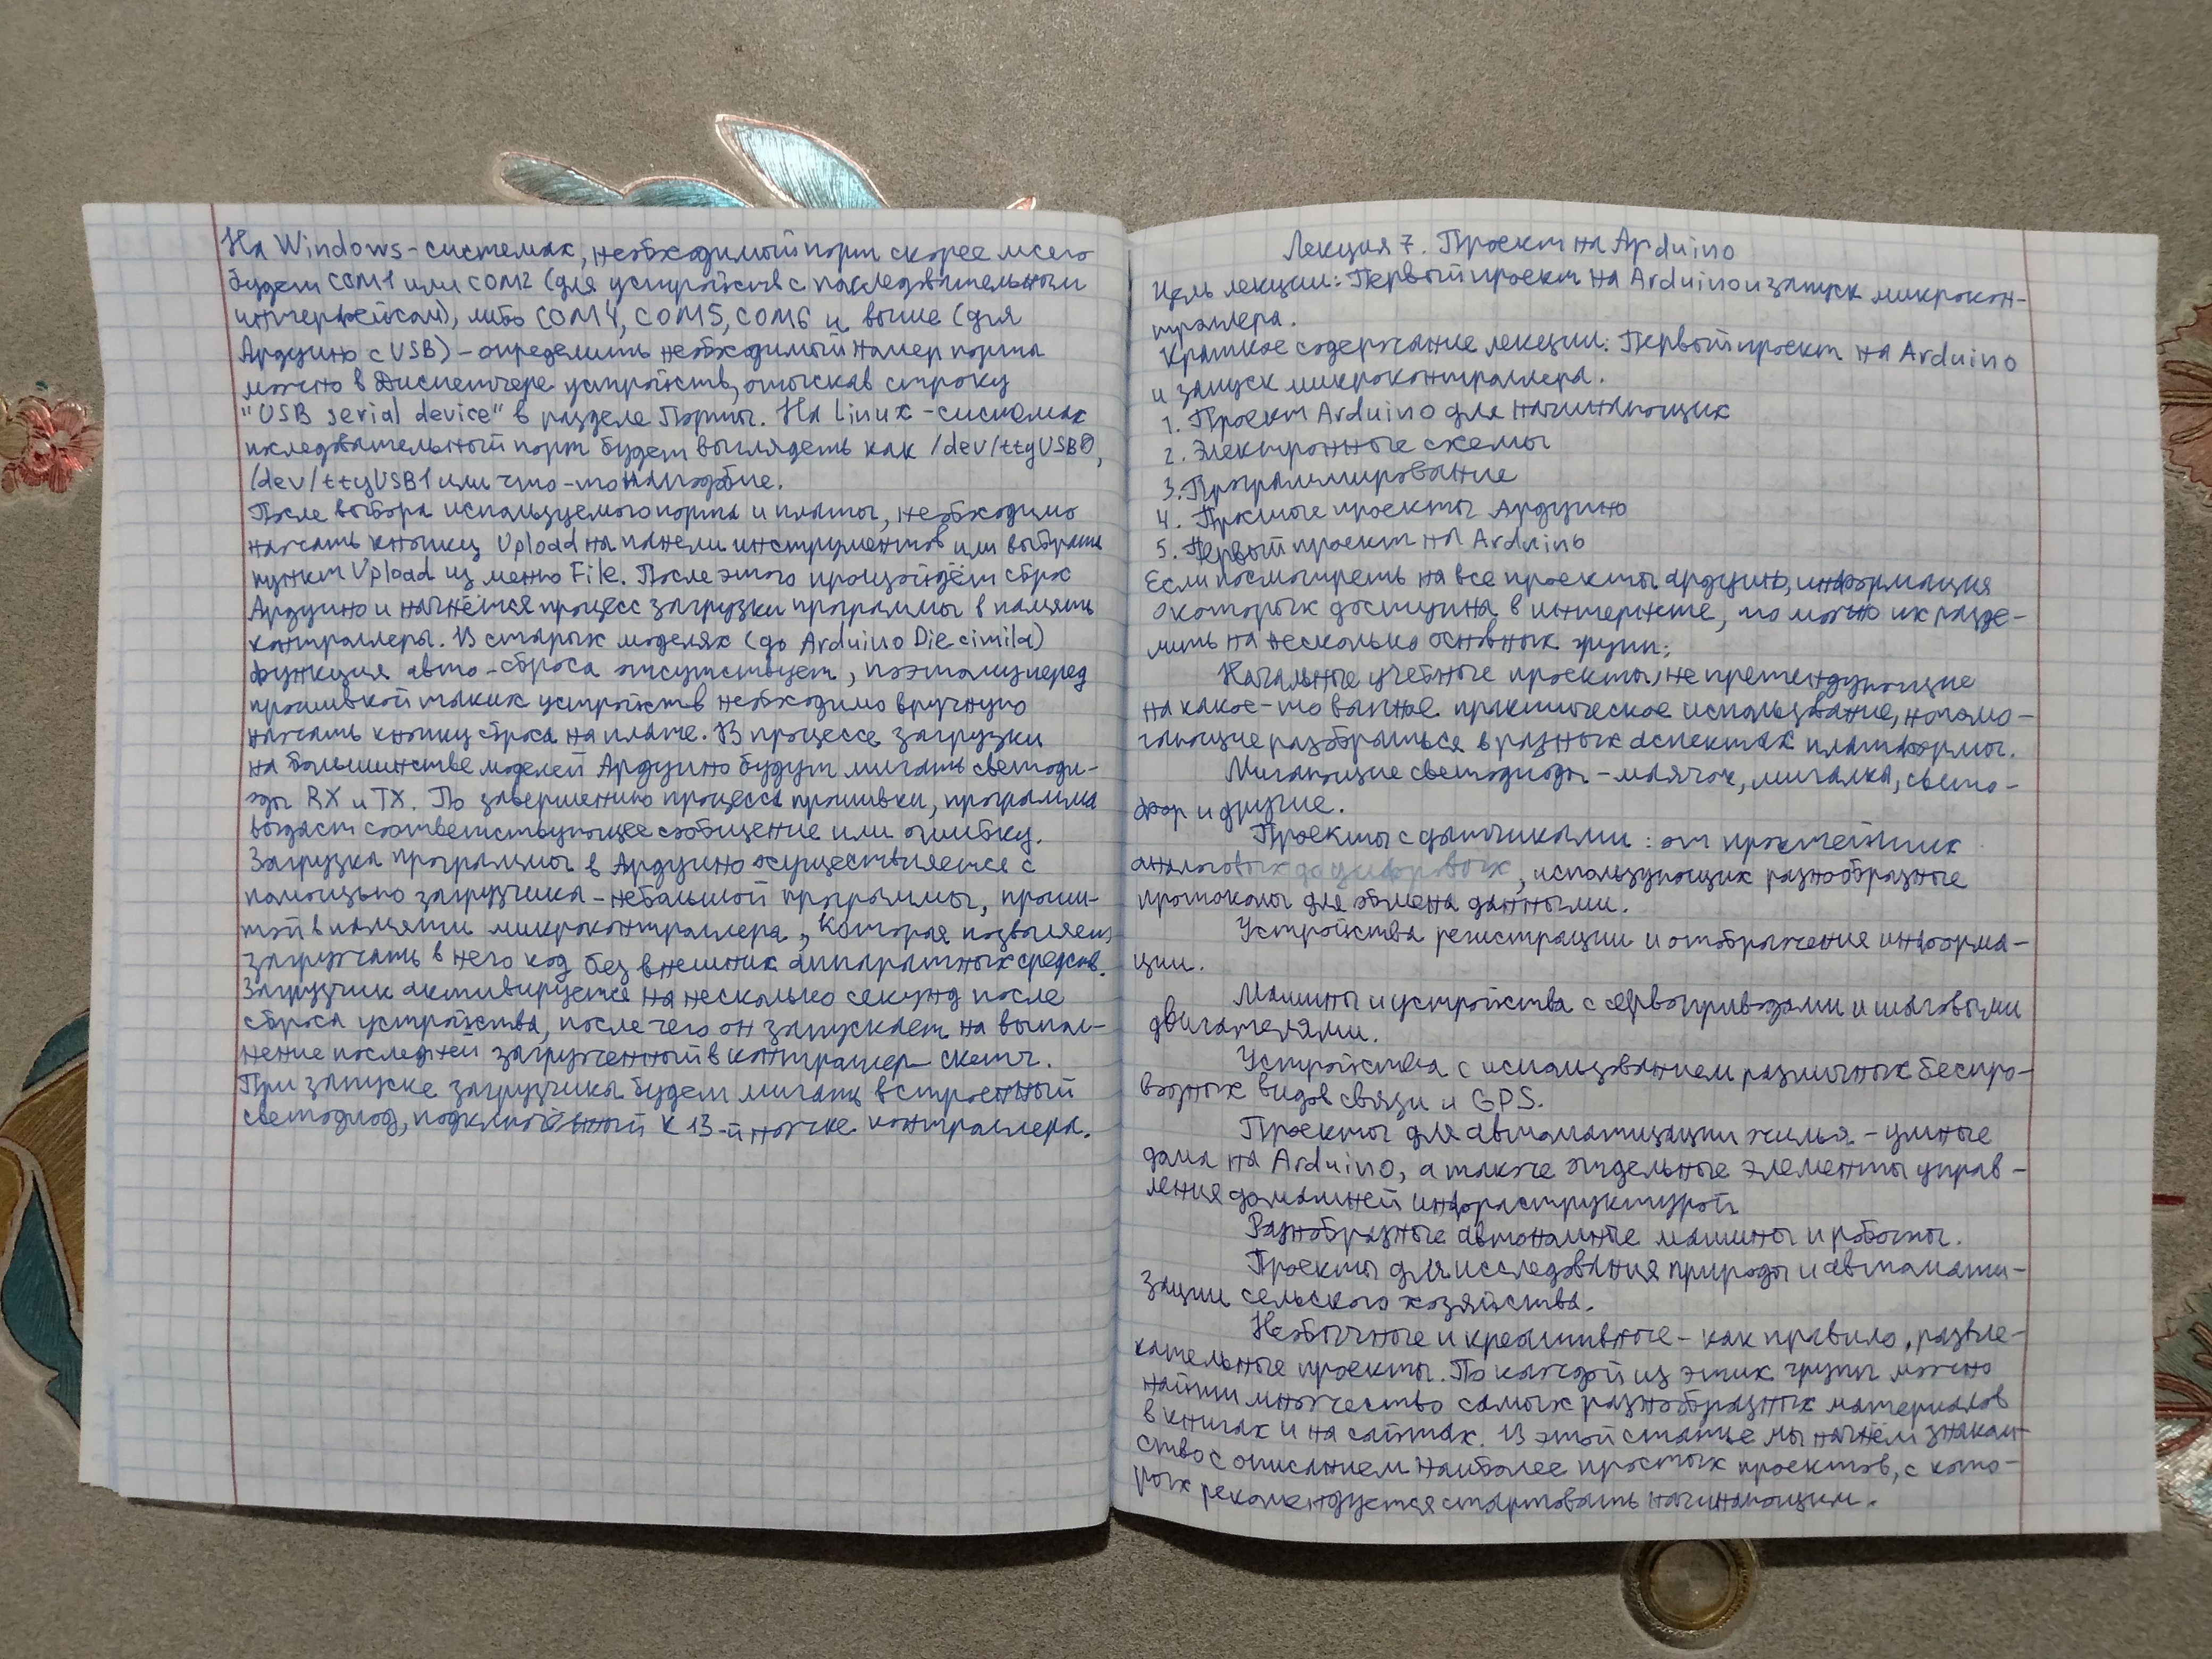 На Windows-системах, необходимый порт скорее всего
будет COM1 или COM2 (для устройств с последовательным
интерфейсом), либо COM4, COM5, COM6 и выше (для
Ардуино с USB) - определить необходимый номер порта
можно в Диспетчере устройств, отыскав строку
"USB serial device" в разделе Порты. На Linux-системах
последовательный порт будет выглядеть как /dev/ttyUSB0,
/dev/ttyUSB1 или что-то наподобие.
После выбора используемого порта и платы, необходимо
нажать кнопку Upload на панели инструментов или выбрать
пункт Upload из меню File. После этого произойдёт сброс
Ардуино и начнётся процесс загрузки программы в память
контроллера. В старых моделях (до Arduino Diecimila)
функция авто-сброса отсутствует, поэтому перед
прошивкой таких устройств необходимо вручную
нажать кнопку сброса на плате. В процессе загрузки
на большинстве моделей Ардуино будут мигать светоди-
оды RX и TX. По завершению процесса прошивки, программа
выдаст соответствующее сообщение или ошибку.
Загрузка программы в Ардуино осуществляется с
помощью загрузчика - небольшой программы, проши-
той в памяти микроконтроллера, которая позволяет
загружать в него код без внешних аппаратных средств.
Загрузчик активируется на несколько секунд после
сброса устройства, после чего он запускает на выпол-
нение последней загруженный в контроллер скетч.
При запуске загрузчика будет мигать встроенный
светодиод, подключённый к 13-й ножке контроллера.
Лекция 7. Проект на Arduino
Цель лекции: Первый проект на Arduino и запуск микрокон-
троллера.
Краткое содержание лекции: Первый проект на Arduino
и запуск микроконтроллера.
1. Проект Arduino для начинающих
2. Электронные схемы
3. Программирование
4. Простые проекты Ардуино
5. Первый проект на Arduino
Если посмотреть на все проекты ардуино, информация
о которых доступна в интернете, то можно их разде-
лить на несколько основных групп:
Начальные учебные проекты, не претендующие
на какое-то важное практическое использование, но помо-
гающие разобраться в разных аспектах платформы.
Мигающие светодиоды - маячок, мигалка, свето-
фор и другие.
Проекты с датчиками: от простейших
аналоговых до цифровых, использующих разнообразные
протоколы для обмена данными.
Устройства регистрации и отображения информа-
ции.
Машины и устройства с сервоприводами и шаговыми
двигателями.
Устройства с использованием различных беспро-
водных видов связи и GPS.
Проекты для автоматизации жилья - умные
дома на Arduino, а также отдельные элементы управ-
ления домашней инфраструктурой.
Разнообразные автономные машины и роботы.
Проекты для исследования природы и автомати-
зации сельского хозяйства.
Необычные и креативные - как правило, развле-
кательные проекты. По каждой из этих групп можно
найти множество самых разнообразных материалов
в книгах и на сайтах. В этой статье мы начнём знаком-
ство с описанием наиболее простых проектов, с кото-
рых рекомендуется стартовать начинающим.